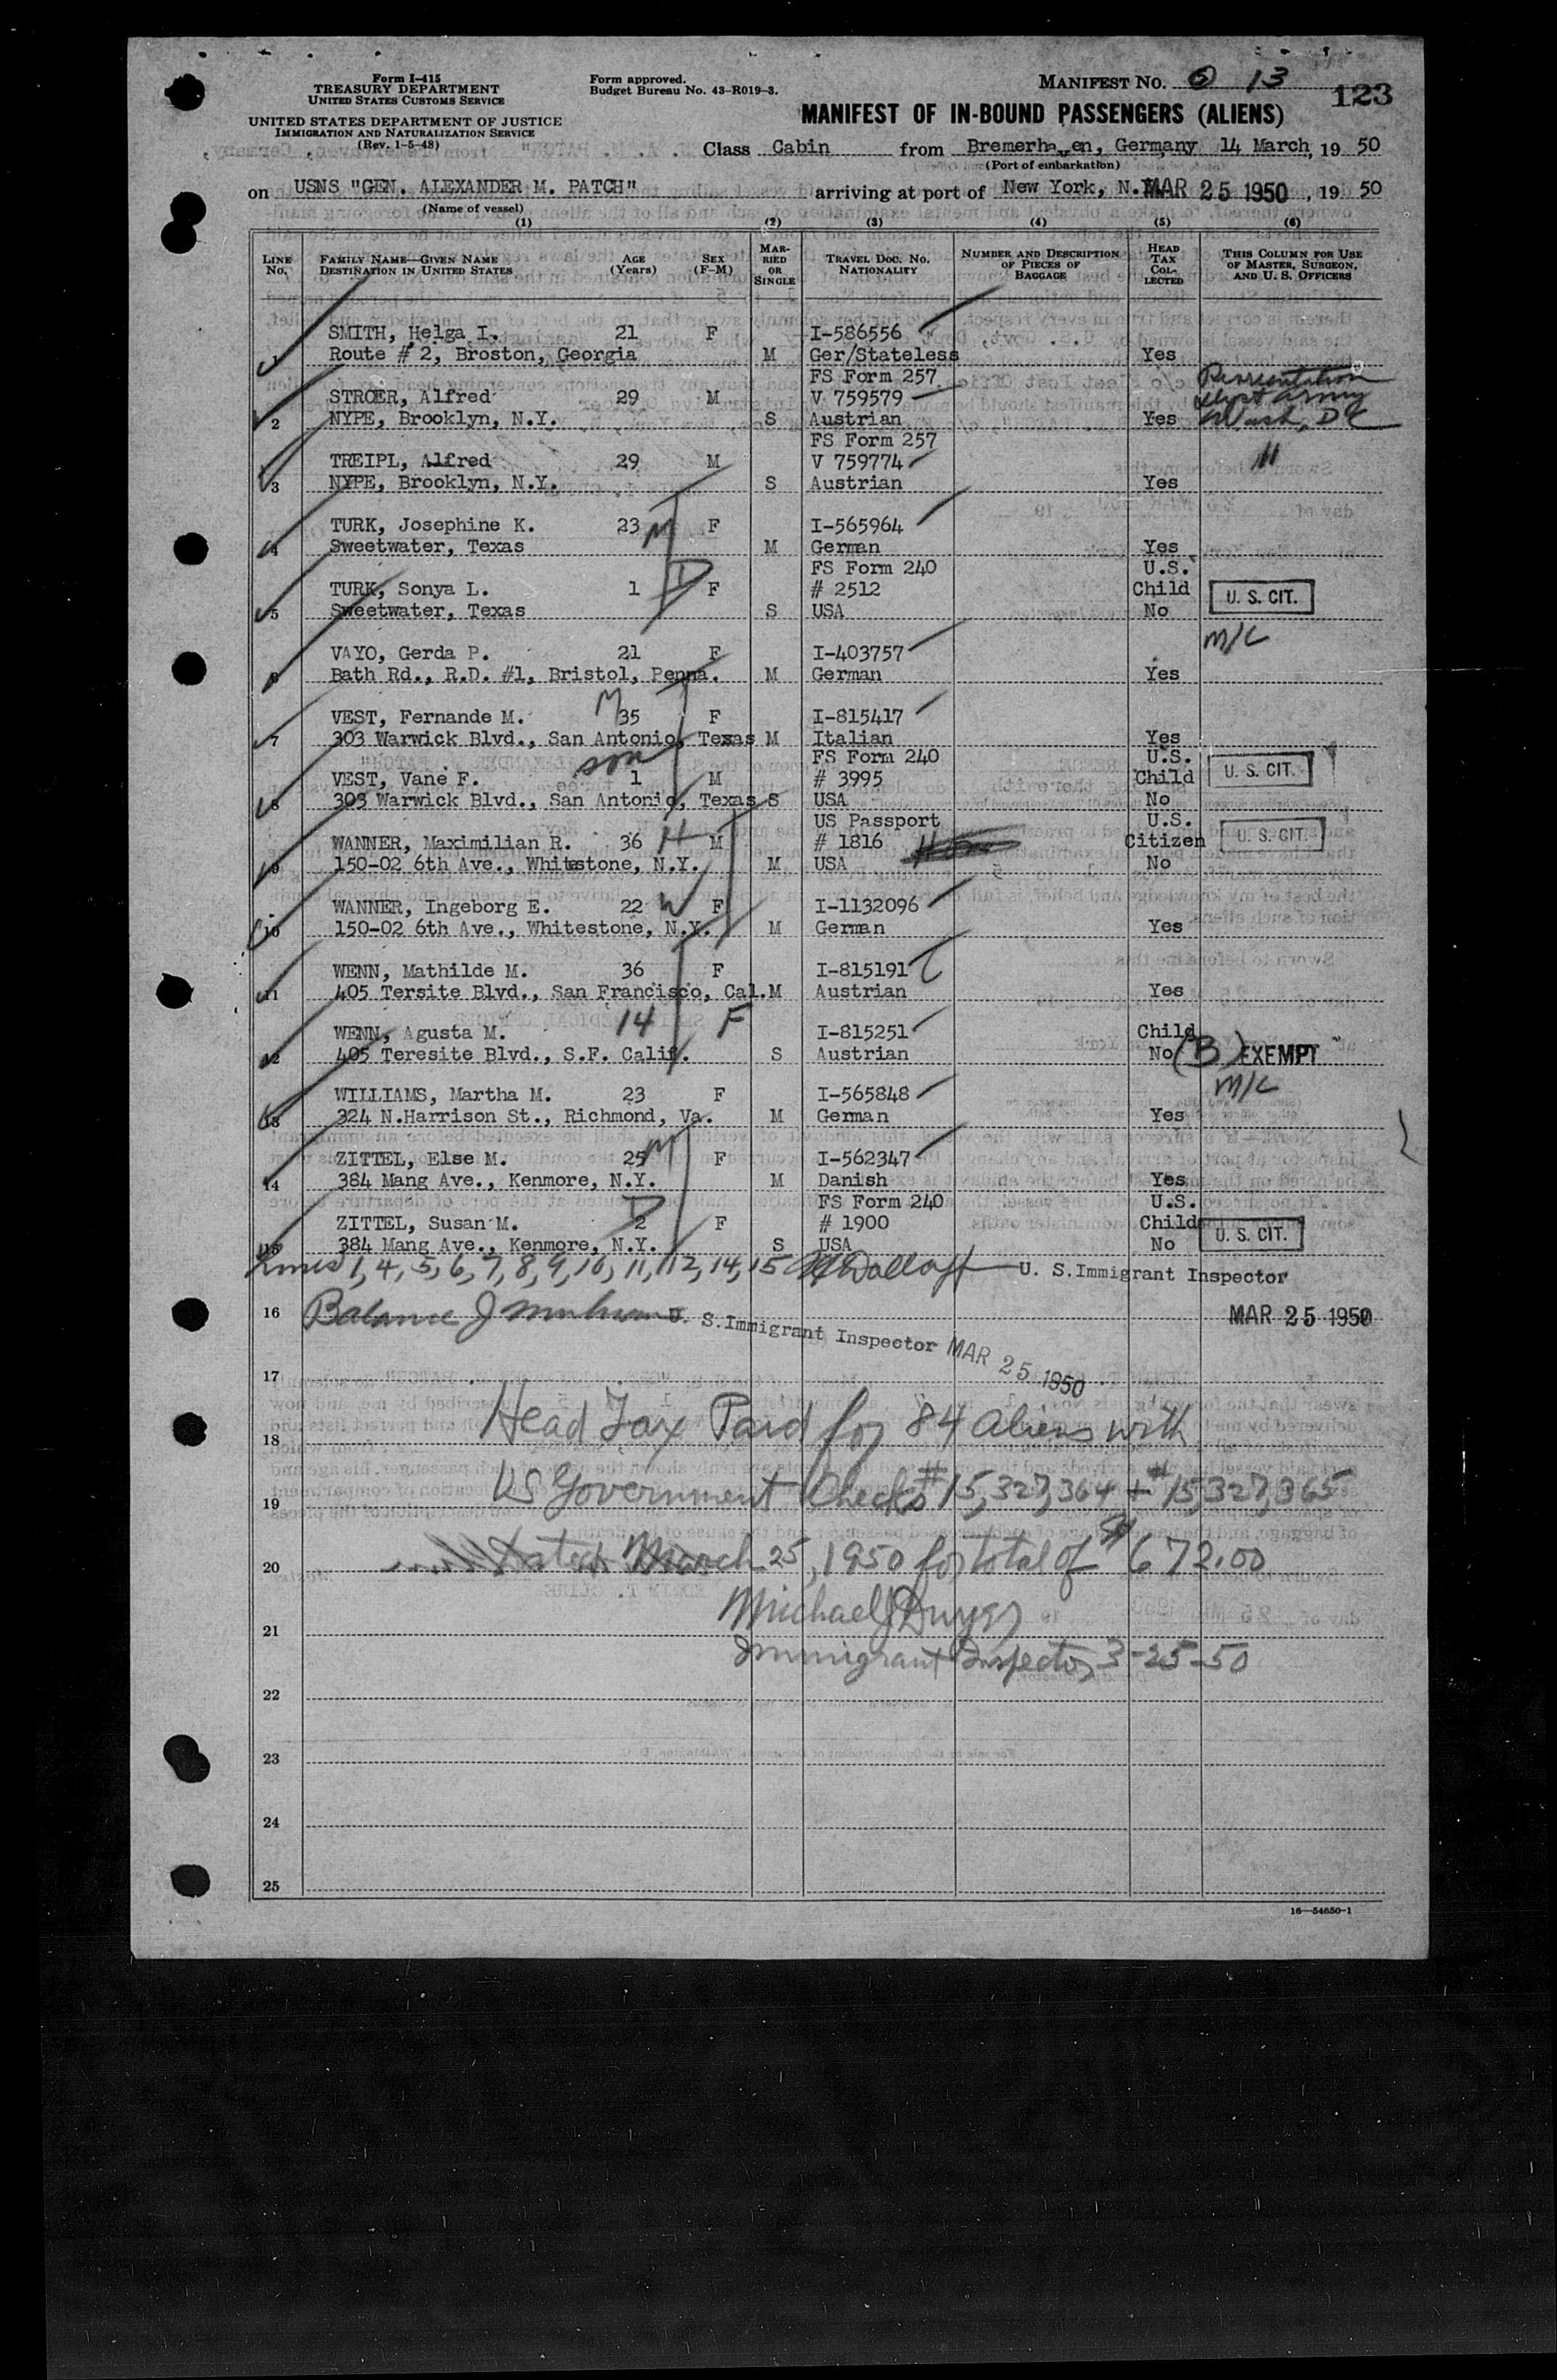 Form I-415
TREASURY DEPARTMENT
UNITED STATES CUSTOMS SERVICE
UNITED STATES DEPARTMENT OF JUSTICE
IMMIGRATION AND NATURALIZATION SERVICE
(Rev. 1-5-48)
Form approved.
Budget Bureau No. 43-R019-3.
MANIFEST NO. 13
123
MANIFEST OF IN-BOUND PASSENGERS (ALIENS)
Class Cabin from Bremerhaven, Germany 14 March, 19 50
(Port of embarkation)
on USNS "GEN. ALEXANDER M. PATCH" arriving at port of New York, N.Y. MAR 25 1950, 19 50
(Name of vessel)
(1) (2) (3) (4) (5) (6)
LINE NO. FAMILY NAME—GIVEN NAME DESTINATION IN UNITED STATES AGE (Years) SEX (F-M) MARRIED OR SINGLE TRAVEL DOC. NO. NATIONALITY NUMBER AND DESCRIPTION OF PIECES OF BAGGAGE HEAD TAX COLLECTED THIS COLUMN FOR USE OF MASTER, SURGEON, AND U. S. OFFICERS
SMITH, Helga I. 21 F I-586556
1 Route # 2, Broston, Georgia M Ger/Stateless Yes
FS Form 257
STROER, Alfred 29 M V 759579 Dept Army
2 NYPE, Brooklyn, N.Y. S Austrian Yes Wash, DC
FS Form 257
TREIPL, Alfred 29 M V 759774 "
3 NYPE, Brooklyn, N.Y. S Austrian Yes
TURK, Josephine K. 23 M F I-565964
4 Sweetwater, Texas M German Yes
FS Form 240 U.S.
TURK, Sonya L. 1 D F # 2512 Child U. S. CIT.
5 Sweetwater, Texas S USA No
VAYO, Gerda P. 21 F I-403757 M/C
6 Bath Rd., R.D. #1, Bristol, Penna. M German Yes
VEST, Fernande M. M 35 F I-815417
7 303 Warwick Blvd., San Antonio, Texas M Italian Yes
son FS Form 240 U.S.
VEST, Vane F. 1 M # 3995 Child U. S. CIT.
8 303 Warwick Blvd., San Antonio, Texas S USA No
US Passport U.S.
WANNER, Maximilian R. 36 H M # 1816 Citizen U. S. CIT.
9 150-02 6th Ave., Whitestone, N.Y. M USA No
WANNER, Ingeborg E. 22 W F I-1132096
10 150-02 6th Ave., Whitestone, N.Y. M German Yes
WENN, Mathilde M. 36 F I-815191
11 405 Tersite Blvd., San Francisco, Cal. M Austrian Yes
WENN, Agusta M. 14 F I-815251 Child
12 405 Teresite Blvd., S.F. Calif. S Austrian No (B) EXEMPT
WILLIAMS, Martha M. 23 F I-565848 M/C
13 324 N.Harrison St., Richmond, Va. M German Yes
ZITTEL, Else M. 25 M F I-562347
14 384 Mang Ave., Kenmore, N.Y. M Danish Yes
FS Form 240 U.S.
ZITTEL, Susan M. D 2 F # 1900 Child U. S. CIT.
15 384 Mang Ave., Kenmore, N.Y. S USA No
Lines 1, 4, 5, 6, 7, 8, 9, 10, 11, 12, 14, 15 U. S. Immigrant Inspector
16 Balance U. S. Immigrant Inspector MAR 25 1950 MAR 25 1950
17
Head Tax Paid for 84 aliens with
18
US Government Checks #15,327,364 + #15,327,365
19
Dated March 25, 1950 for total of $672.00
20
Michael J Dwyer
21
Immigrant Inspector 3-25-50
22
23
24
25
16—54650-1